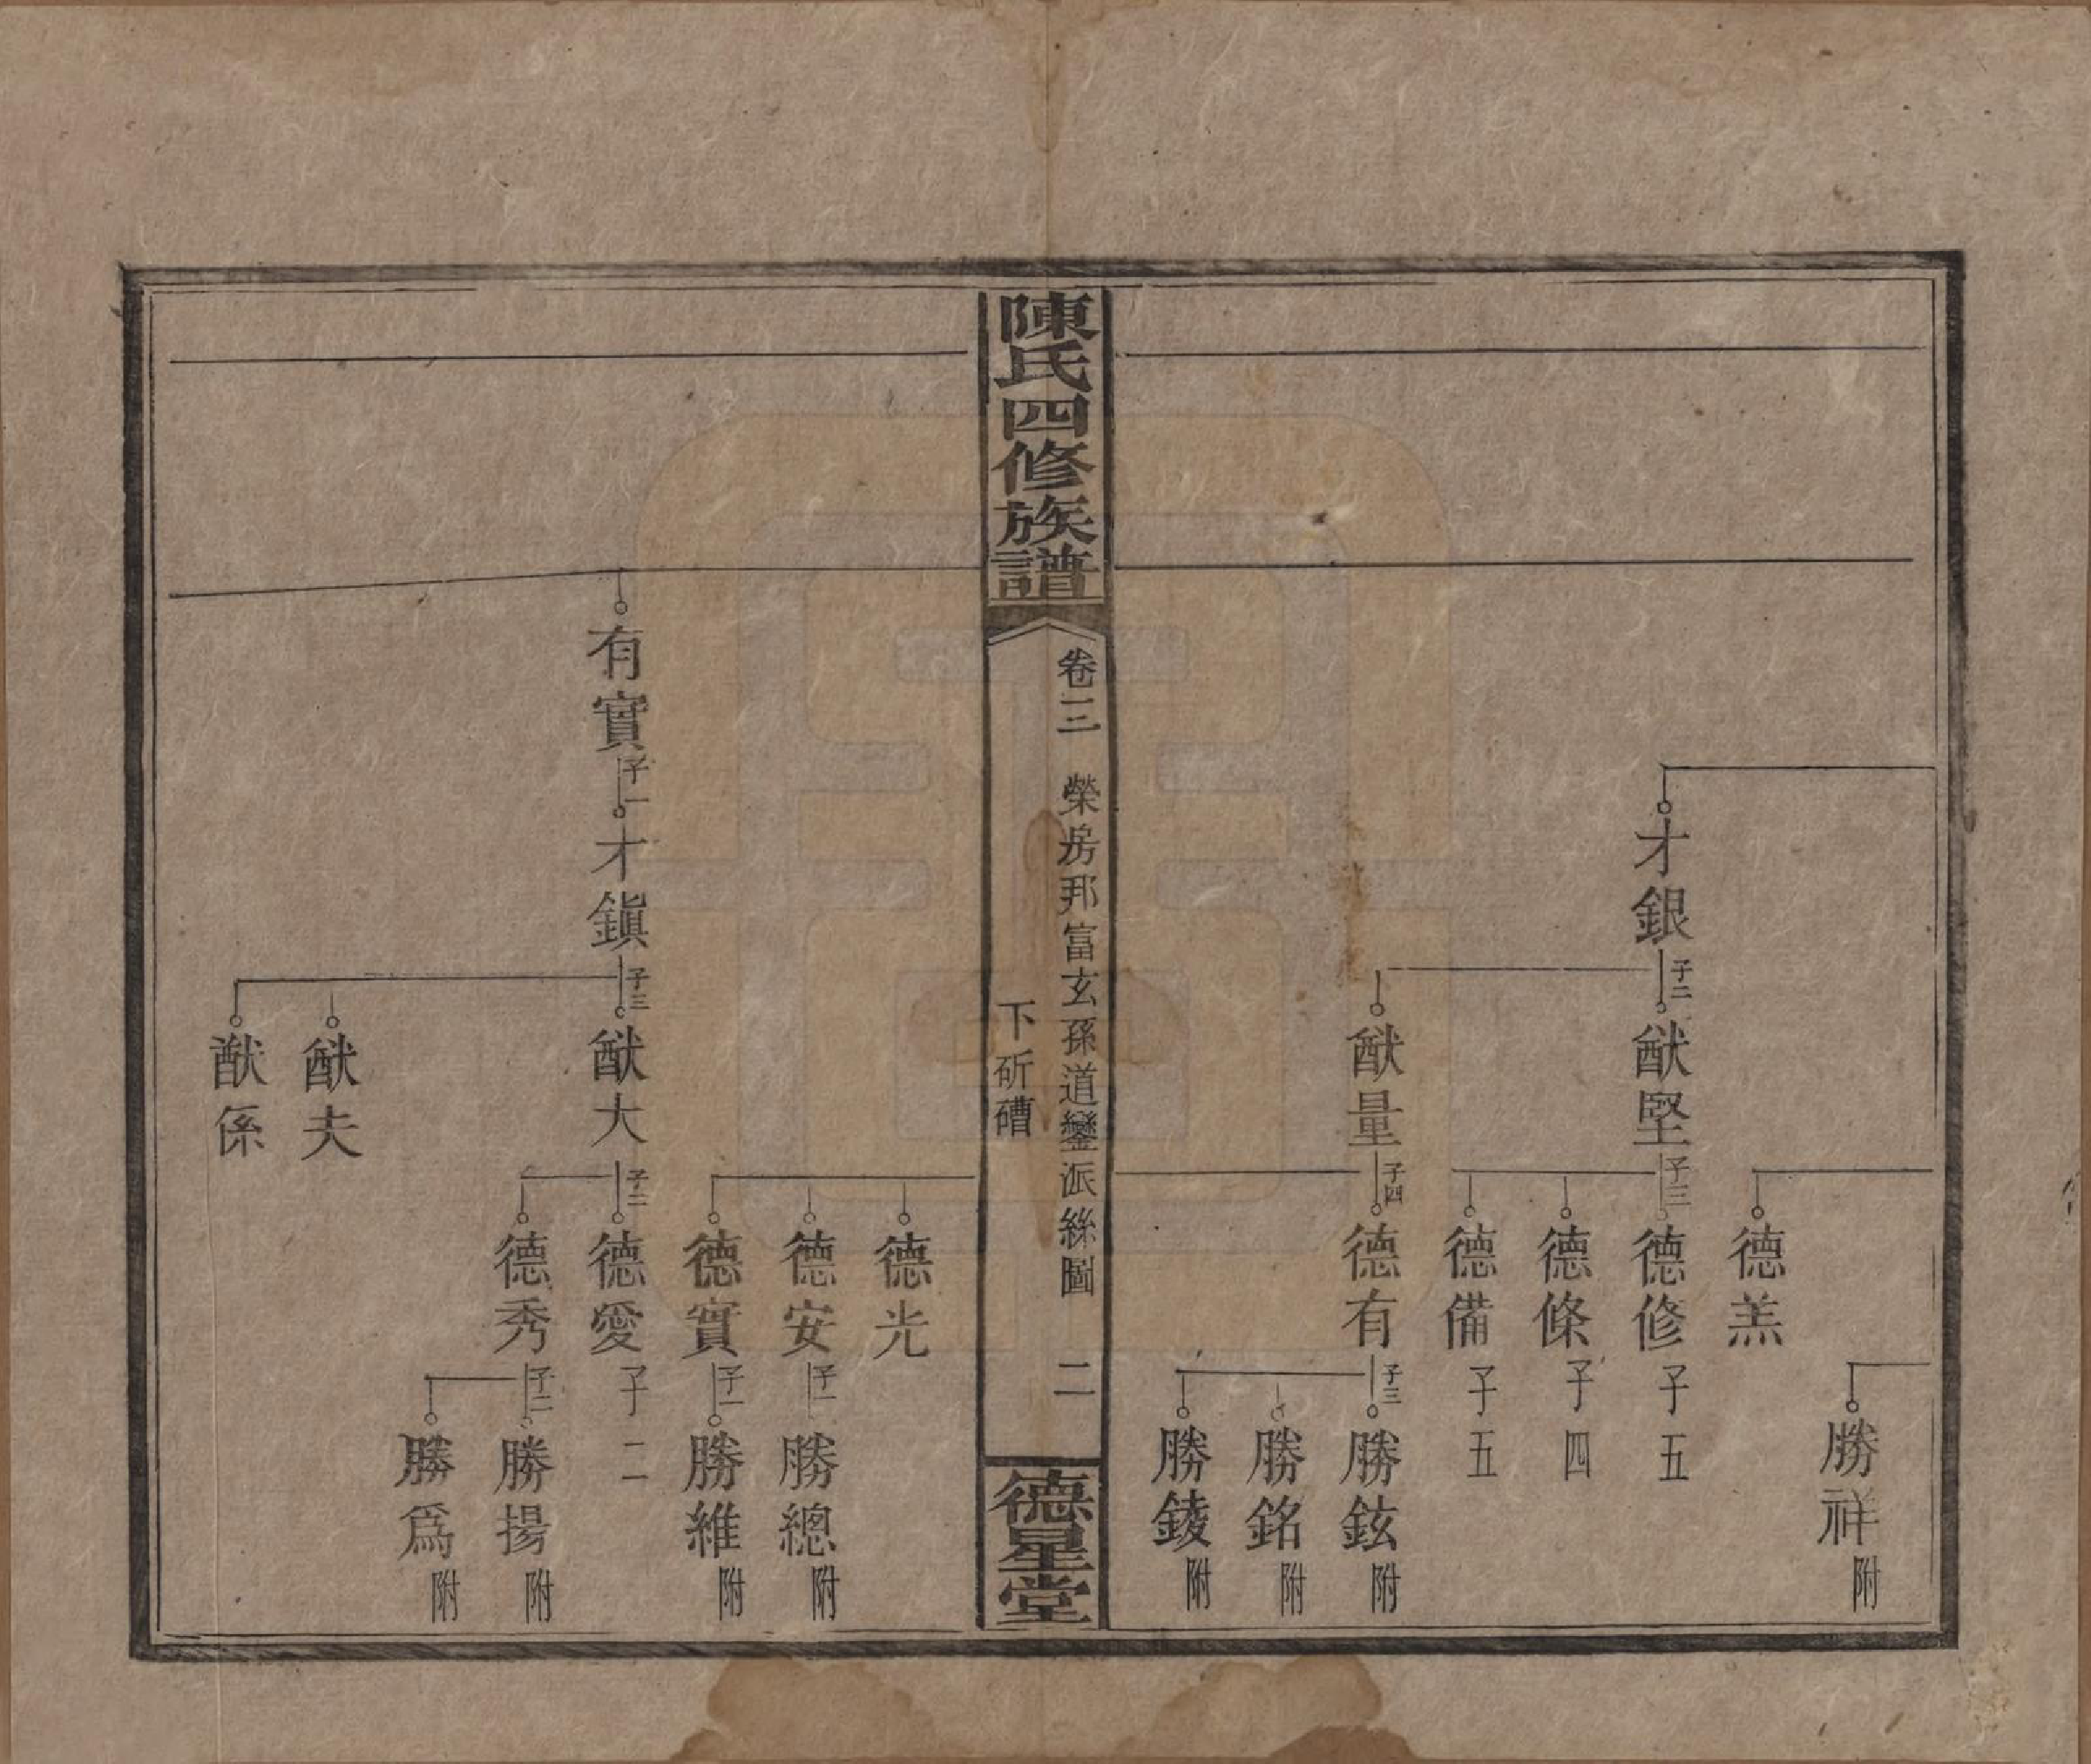 勝祥附
德羔
才銀子二猷堅子三德修子五
德條子四
德備子五
猷量子四德有子三勝鉉附
勝銘附
勝錂附
陳氏四修族譜
卷三 榮房邦富玄孫道鑾派絲圖 二
下斫磳
德星堂
德光
德安子一勝總附
德實子一勝維附
有實子一才鎮子三猷大子二德愛子二
德秀子二勝揚附
勝為附
猷夫
猷係